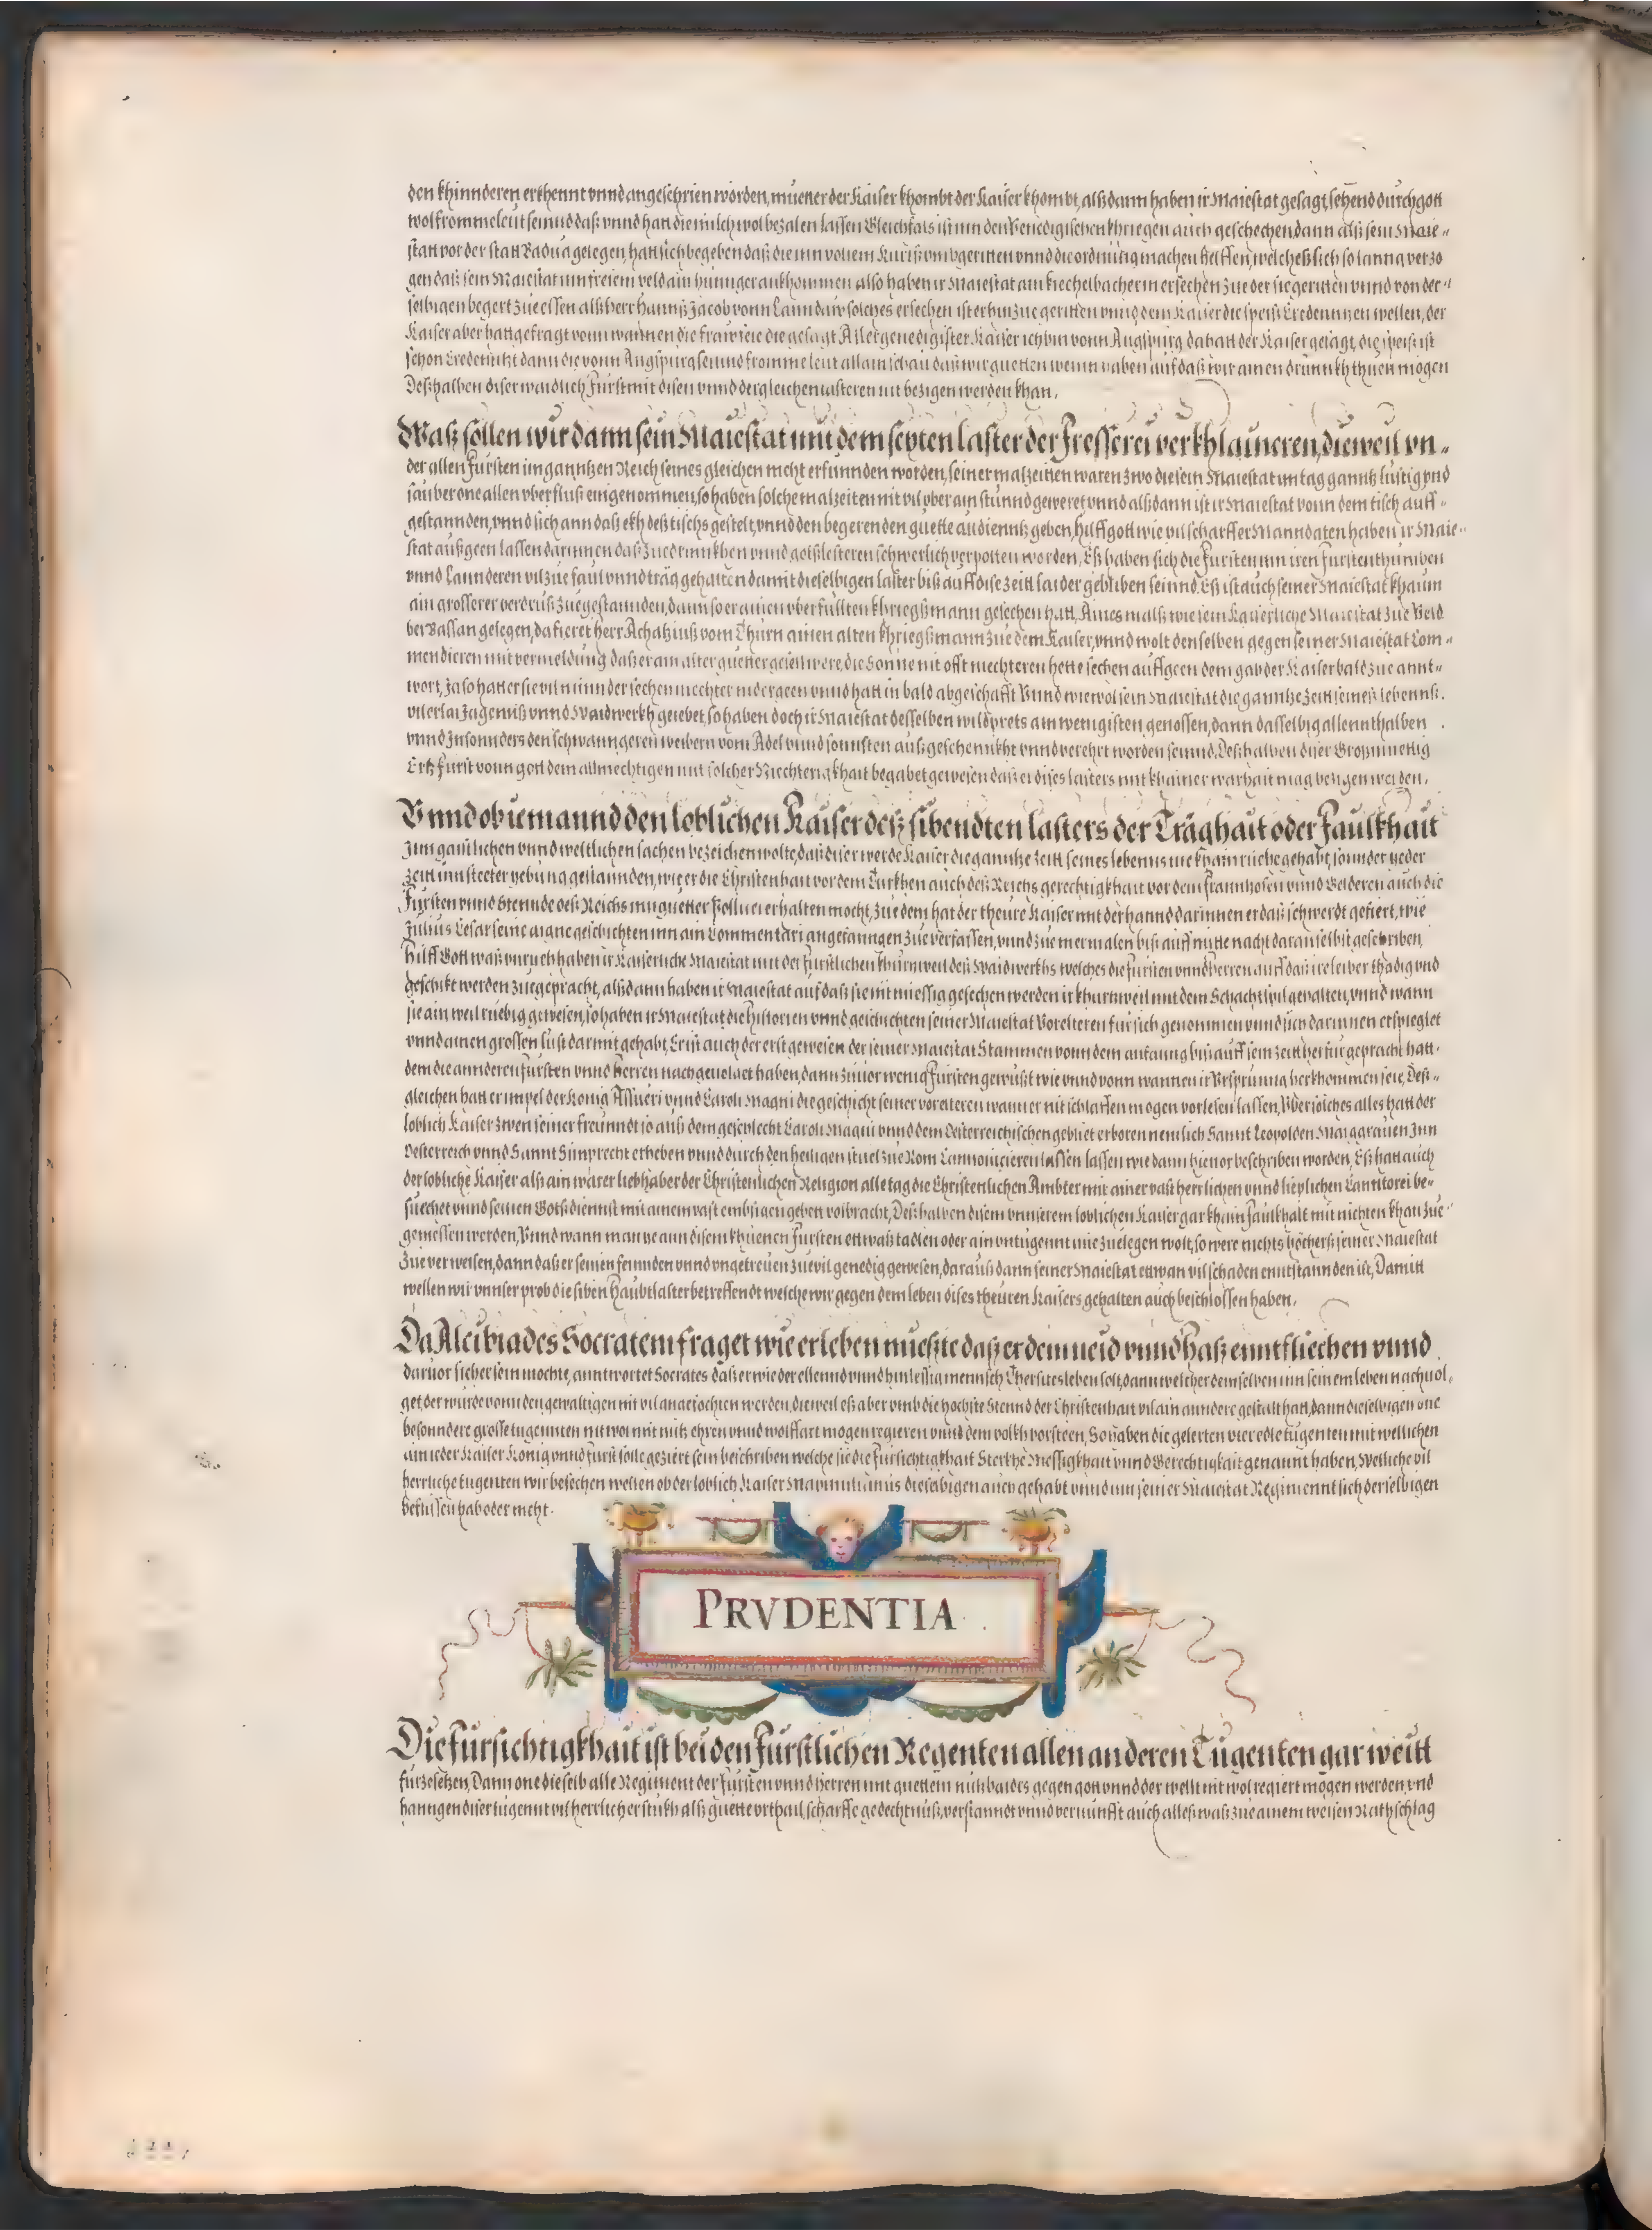 den khinnderen erkhennt vnnd angeschrien worden, mueter der Kaiser khombt der Kaiser khombt, alßdann haben ir Maiestat gesagt, sehend durch gott
wol fromme leüt seinnd daß vnnd hatt die milch wol bezalen lassen Gleichfals ist inn den Venedigischen khriegen auch geschechen dann alß sein Maie-
statt vor der statt Padua gelegen, hatt sich begeben daß die inn vollem Küriß vmbgeritten vnnd die ordnung machen helffen, welcheß sich so lanng verzo
gen daß sein Maiestat inn freiem veld ain hunnger ankhommen also haben ir Maiestat ain kiechelbacherin ersechen zue der sie geritten vnnd von der-
selbigen begert zue essen alß herr Hannß Jacob vonn Lanndaw solches ersechen ist er hinzue geritten vnnd dem Kaiser die speiß Credenntzen wellen, der
Kaiser aber hatt gefragt vonn wannen die fraw seie die gesagt Allergenedigister Kaiser ich bin vonn Augspurg da hatt der Kaiser gesagt, die speiß ist
schon Credenntzt dann die vonn Augspurg seinnd fromme leut allain schau daß wir guetten wein haben auf daß wir ainen drunnkh thuen mögen
Deßhalben diser waidlich Fürst mit disen vnnd dergleichen lasteren nit bezigen werden khan.
Waß sollen wir dann sein Maiestat mit dem sexten laster der Fresserei verkhlaineren, dieweil vn-
der allen Fursten im ganntzen Reich seines gleichen nicht erfunnden worden, seiner malzeitten waren zwo die sein Maiestat im tag gannß lustig vnd
sauber one allen vberfluß eingenommen, so haben solche malzeiten nit vil vber ain stunnd geweret vnnd alßdann ist ir Maiestat vonn dem tisch auff-
gestannden, vnnd sich ann daß ekh deß tischs gestelt, vnnd den begerenden guette audienntz geben, Hilff gott wie vil scharffer Manndaten haben ir Maie-
stat außgeen lassen darinnen daß zuedrinnkhen vnnd gotßlesteren schwerlich verpotten worden, Eß haben sich die Fursten inn iren furstenthumben
vnnd Lannderen vil zue faul vnnd träg gehalten damit dieselbigen laster biß auff dise zeitt laider gebliben seinnd. Eß ist auch seiner Maiestat khaum
ain grosserer verdruß zuegestannden, dann so er ainen vberfullten khriegßmann gesechen hatt, Ains malß wie sein Kaiserliche Maiestat zue Veld
bei Bassan gelegen, da fieret herr Achatzius vom Thurn ainen alten khriegßmann zue dem Kaiser, vnnd wolt denselben gegen seiner Maiestat Com-
mendieren mit vermeldung daß er ain alter guetter gesell were, die Sonne nit offt niechteren hette sechen auffgeen dem gab der Kaiser bald zue annt-
wort, Ja so hatt er sie vil minnder sechen niechter nidergeen vnnd hatt in bald abgeschafft Vnnd wiewol sein Maiestat die ganntze zeitt seineß lebennß
vilerlai Jagenß vnnd Waidwerkh geiebet, so haben doch ir Maiestat desselben wildprets am wenigisten genossen, dann dasselbig allennthalben
vnnd Insonnders den schwanngeren weibern vom Adel vnnd sonnsten außgeschennkht vnnd verehrt worden seinnd. Deßhalben diser Großmuettig
Ertzfurst vonn gott dem allmechtigen mit solcher Niechterigkhait begabet gewesen daß er dises lasters mit khainer warhait mag bezigen werden.
Vnnd ob iemannd den loblichen Kaiser deß sibendten lasters der Träghait oder Faulkhait
Inn gaistlichen vnnd weltlichen sachen bezeichen wolte, daß diser werde Kaiser die ganntze zeitt seines lebenns nie khain rueche gehabt, sonnder yeder
zeitt inn steeter yebung gestannden, wie er die Christenhait vor dem Türkhen auch deß Reichs gerechtigkhait vor dem Frannhosen vnnd Gelderen auch die
Fursten vnnd Stennde deß Reichs inn guetter Pollicei erhalten mocht, zue dem hat der theure Kaiser mit der hannd darinnen er daß schwerdt gefiert, wie
Julius Cesar seine aigne geschichten inn ain Commentari angefanngen zue verfassen, vnnd zue mermalen biß auff mitte nacht daran selbst geschriben,
Hilff Gott waß vnruech haben ir Kaiserliche Maiestat mit der furstlichen khurtzweil deß Waidwerkhs welches die Fursten vnnd Herren auff daß ire leiber thädig vnd
geschikt werden zuegepracht, alßdann haben ir Maiestat auf daß sie nit miessig gesechen werden ir khurtzweil mit dem Schachtspil gehalten, vnnd wann
sie ain weil ruebig gewesen, so haben ir Maiestat die Historien vnnd geschichten seiner Maiestat Vorelteren fur sich genommen vnnd sich darinnen erspieglet
vnnd ainen grossen lust darmit gehabt, Er ist auch der erst gewesen der seiner Maiestat Stammen vonn dem anfanng biß auff sein zeitt herfur gepracht hatt.
dem die annderen Fursten vnnd Herren nachgeuolget haben, dann zuuor wenig Fursten gewüßt wie vnnd vonn wannen ir Vrsprunng herkhommen seie, Deß-
gleichen hatt er impel der König Assueri vnnd Caroli Magni die geschicht seiner vorelteren wann er nit schlaffen mögen vorlesen lassen, Vber solches alles hatt der
loblich Kaiser zwen seiner freunndt so auß dem geschlecht Caroli Magni vnnd dem Oesterreichischen gebliet erboren nemlich Sannt Leopolden Marggrauen Inn
Oesterreich vnnd Sannt Simprecht erheben vnnd durch den heiligen stuel zue Rom Cannonicieren lassen lassen wie dann hieuor beschriben worden, Eß hatt auch
der lobliche Kaiser alß ain warer liebhaber der Christenlichen Religion alle tag die Christenlichen Ambter mit ainer vast herrlichen vnnd lieplichen Canntorei be-
suechet vnnd seinen Gotßdiennst mit ainem vast embsigen geben volbracht, Deßhalben disem vnnserem loblichen Kaiser gar khain Faulkhait mit nichten khan zue
gemessen werden, Vnnd wann man ye ann disem khuenen Fursten ettwaß tadlen oder ain vntugennt nie zuelegen wolt, so were nichts höchers seiner Maiestat
zue verweisen, dann daß er seinen feinnden vnnd vngetreuen zue vil genedig gewesen, darauß dann seiner Maiestat ettwan vil schaden enntstannden ist, Damitt
wellen wir vnnser prob die siben Haubtlaster betreffendt welche wir gegen dem leben dises theuren Kaisers gehalten auch beschlossen haben.
Da Alcibiades Socratem fraget wie er leben mueßte daß er dem neid vnnd Haß enntfliechen vnnd
daruor sicher sein mochte, anntwortet Socrates daß er wie der ellennd vnnd hinlessig mennsch Thersites leben solt, dann welcher demselben inn seinem leben nachuol-
get, der wurde vonn den gewaltigen nit vil angefochten werden, dieweil eß aber vmb die höchste Stennd der Christenhait vil ain anndere gestalt hatt, dann dieselbigen one
besondere grosse tugennten nit wol mit nutz ehren vnnd wolffart mögen regieren vnnd dem volkh vorsteen, So haben die gelerten vier edle tugenten mit wellichen
ain ieder Kaiser König vnnd Furst solle geziert sein beschriben welche sie die Fursichtigkhait Sterkhe Messigkhait vnnd Gerechtigkait genannt haben, Welliche vil
herrliche tugenten wir besechen wellen ob der loblich Kaiser Maximilianus dieselbigen auch gehabt vnnd inn seiner Maiestat Regimennt sich derselbigen
beflissen hab oder nicht.
PRVDENTIA
Die fursichtigkhait ist bei den Furstlichen Regenten allen anderen Tugenten gar weitt
furzesetzen, Dann one dieselb alle Regiment der Fursten vnnd Herren mit guettem nutz baides gegen gott vnnd der wellt nit wol regiert mögen werden, vnd
hanngen diser tugennt vil herrlicher stukh alß guette vrthail, scharffe gedechtnuß, verstanndt vnnd vernunfft auch alles waß zue ainem weisen Rathschlag